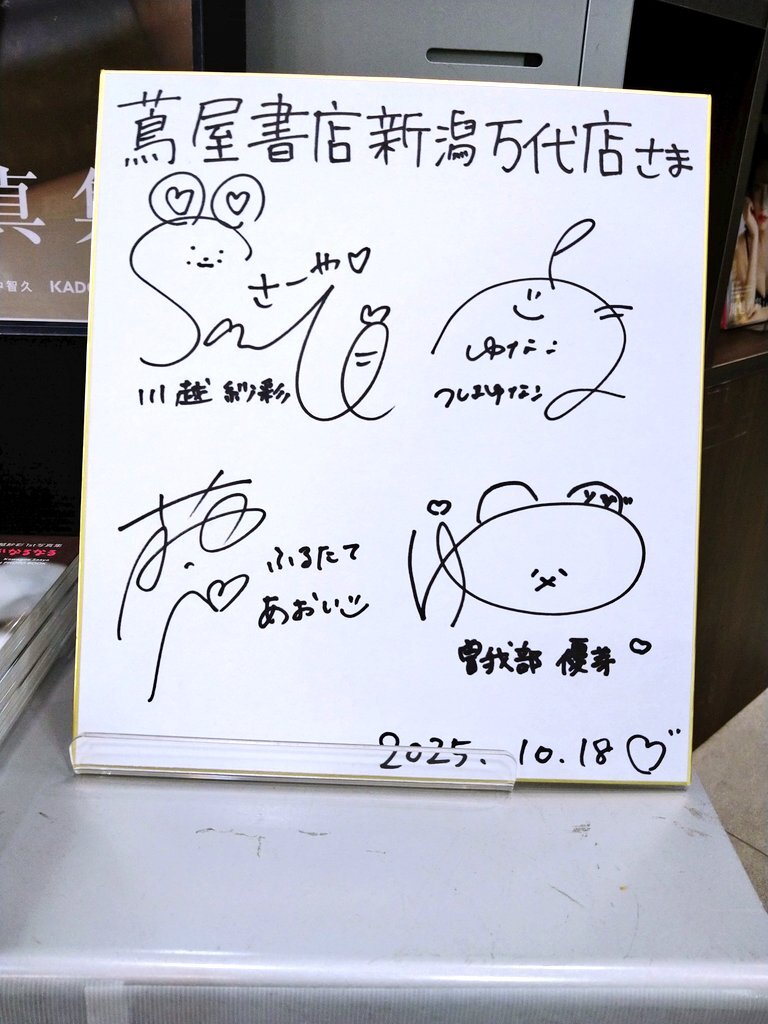 蔦屋書店新潟万代店さま
さーや♡
川越 紗彩
ゆなこ
つしまゆなこ
ふるたて
あおい
曽我部 優芽 ♡
2025. 10.18♡
中智久 KADO